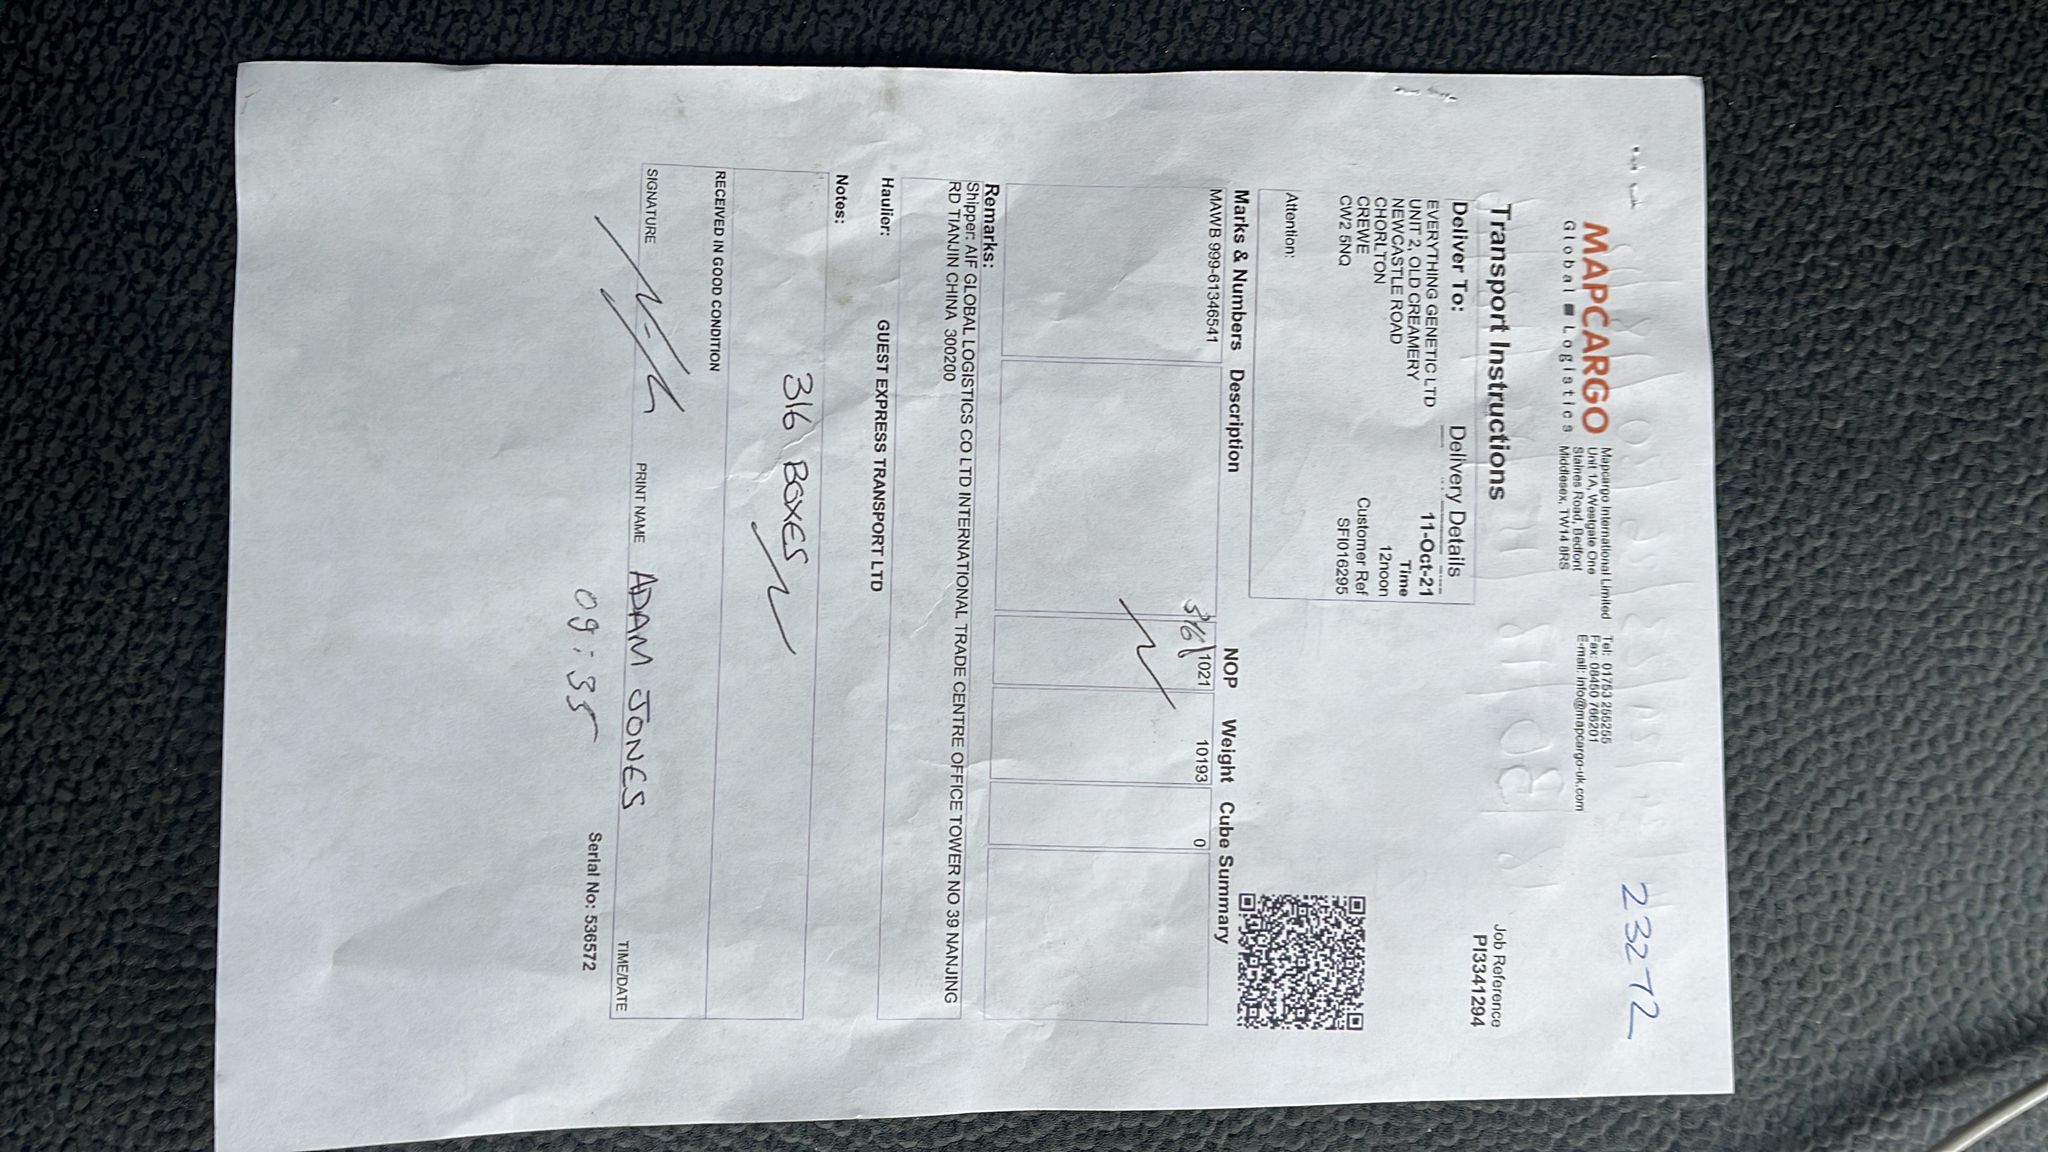 23272
MAPCARGO
Global Logistics
Mapcargo International Limited
Unit 1A, Westgate One
Staines Road, Bedfont
Middlesex, TW14 8RS
Tel: 01753 255255
Fax: 08450 766201
E-mail: info@mapcargo-uk.com
Transport Instructions
Job Reference
PI3341294
Deliver To:
EVERYTHING GENETIC LTD
UNIT 2, OLD CREAMERY
NEWCASTLE ROAD
CHORLTON
CREWE
CW2 5NQ
Attention:
Delivery Details
11-Oct-21
Time
12noon
Customer Ref
SFI016295
Marks & Numbers Description NOP Weight Cube Summary
MAWB 999-61346541 316\1021 10193 0
Remarks:
Shipper: AIF GLOBAL LOGISTICS CO LTD INTERNATIONAL TRADE CENTRE OFFICE TOWER NO 39 NANJING
RD TIANJIN CHINA 300200
Haulier: GUEST EXPRESS TRANSPORT LTD
Notes:
316 BOXES
RECEIVED IN GOOD CONDITION
SIGNATURE PRINT NAME ADAM JONES TIME/DATE
09:35
Serial No: 536572